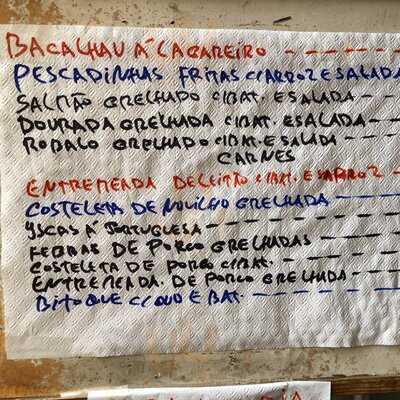 BACALHAU Á LAGAREIRO
PESCADINHAS FRITAS C/ARROZ E SALADA
SALMÃO GRELHADO C/BAT. E SALADA
DOURADA GRELHADA C/BAT. E SALADA
ROBALO GRELHADO C/BAT. E SALADA
CARNES
ENTREMEADA DE LEITÃO C/BAT. E SARROZ
COSTELETA DE NOVILHO GRELHADA
YSCAS Á PORTUGUESA
FEBRAS DE PORCO GRELHADAS
COSTELETA DE PORCO C/BAT.
ENTREMEADA. DE PORCO GRELHADA
BITOQUE C/OVO E BAT.